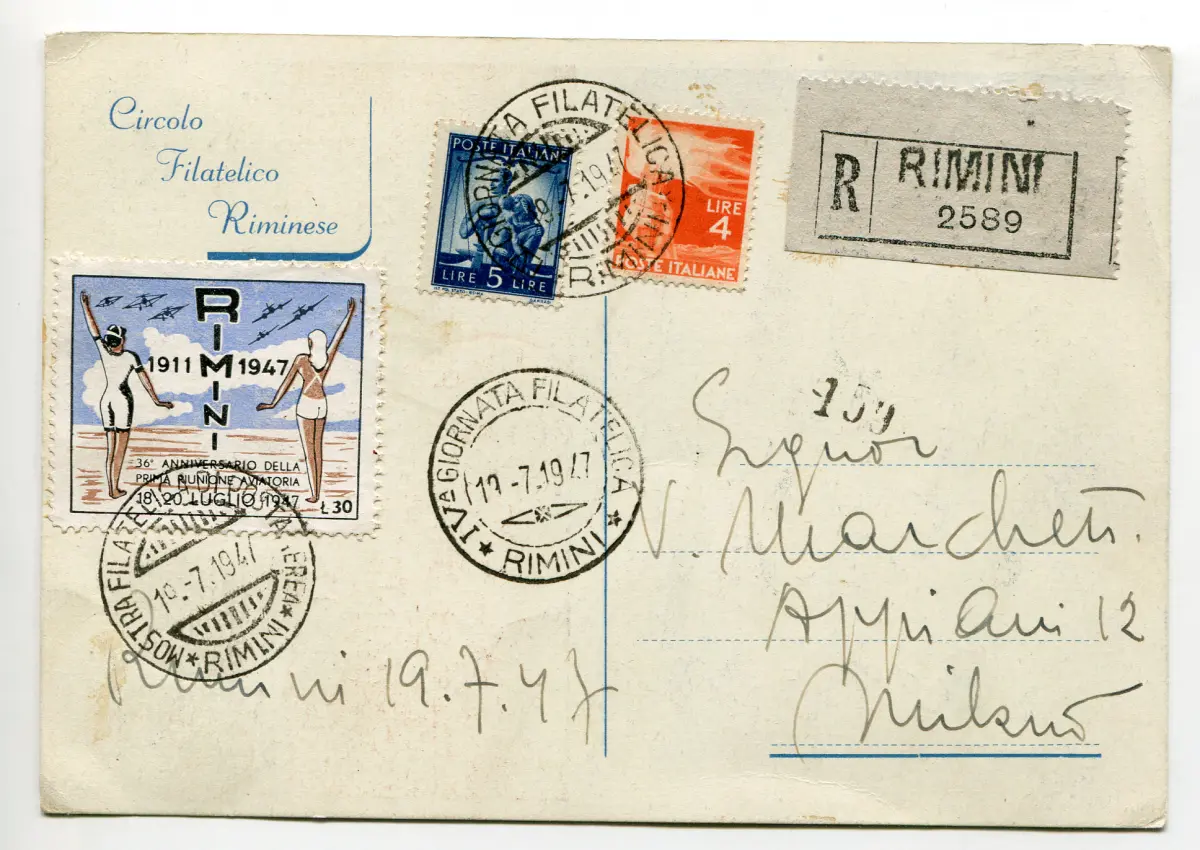 Circolo
Filatelico
Riminese
POSTE ITALIANE
LIRE 5 LIRE
LIRE
4
POSTE ITALIANE
GIORNATA FILATELICA
RIMINI
R
RIMINI
2589
RIMINI
1911 1947
36° ANNIVERSARIO DELLA
PRIMA RIUNIONE AVIATORIA
18-20 LUGLIO 1947
Ł30
IVª GIORNATA FILATELICA
19.-7.1947
★ RIMINI ★
MOSTRA FILATELICA DI POSTA AEREA
19.-7.1947
★ RIMINI ★
Rimini 19.7.47
Signor
V. Marchetti
Appiani 12
Milano